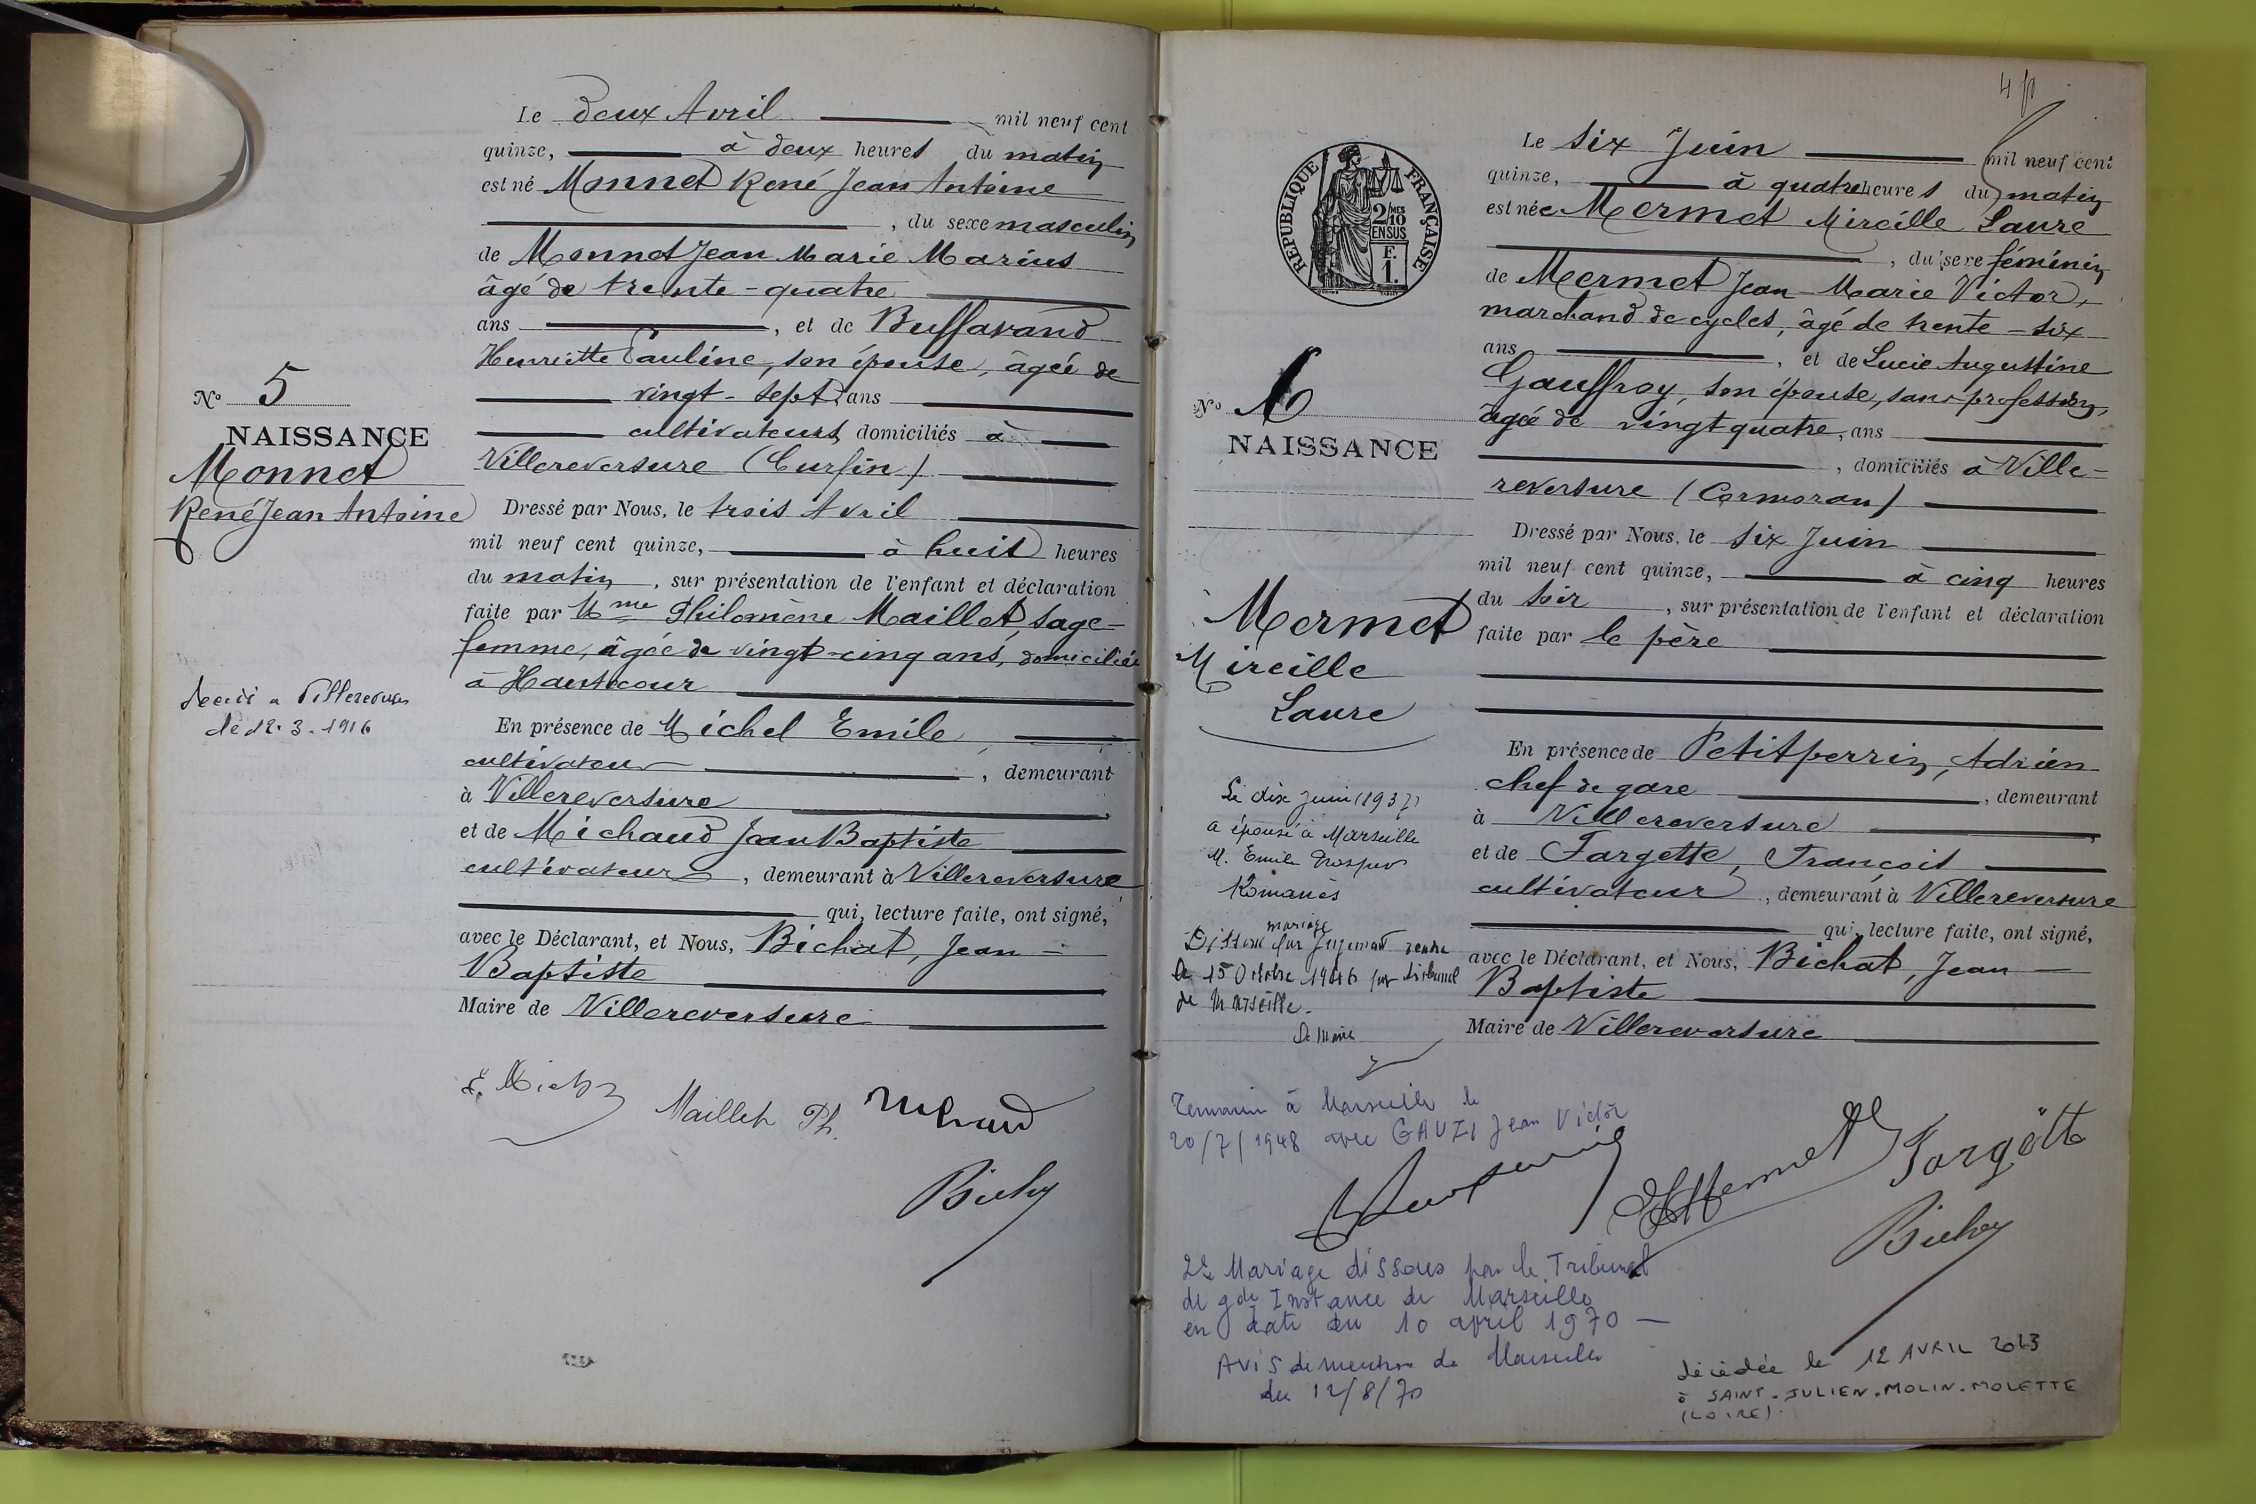 Le deux Avril mil neuf cent
quinze, à deux heures du matin
est né Monnet René Jean Antoine
, du sexe masculin
de Monnet Jean Marie Marius
âgé de trente-quatre
ans , et de Buffavand
Henriette Pauline, son épouse, âgée de
vingt-sept ans
cultivateurs domiciliés à
Villereversure (Curfin)
No 5
NAISSANCE
Monnet
René Jean Antoine
Dressé par Nous, le trois Avril
mil neuf cent quinze, à huit heures
du matin, sur présentation de l'enfant et déclaration
faite par Mme Philomène Maillet, sage-
femme, âgée de vingt-cinq ans, domiciliée
à Hautecour
décédé à Villereversure
le 12.3.1916
En présence de Michel Emile,
cultivateur , demeurant
à Villereversure
et de Michaud Jean Baptiste
cultivateur , demeurant à Villereversure
qui, lecture faite, ont signé,
avec le Déclarant, et Nous, Bichat, Jean-
Baptiste
Maire de Villereversure
Maillet Ph.
4
RÉPUBLIQUE FRANÇAISE
2/10 MES
EN SUS
F.
1.
Le six Juin mil neuf cent
quinze, à quatre heures du matin
est née Mermet Mireille Laure
, du sexe féminin
de Mermet Jean-Marie Victor,
marchand de cycles, âgé de trente-six
ans , et de Lucie Augustine
Gauffroy, son épouse, sans profession,
âgée de vingt quatre, ans
, domiciliés à Ville-
reversure (Cormoran)
No 6
NAISSANCE
Mermet
Mireille
Laure
Dressé par Nous, le six Juin
mil neuf cent quinze, à cinq heures
du soir , sur présentation de l'enfant et déclaration
faite par le père
En présence de Petitperrin, Adrien
chef de gare , demeurant
à Villereversure
et de Fargette, François
cultivateur , demeurant à Villereversure
qui, lecture faite, ont signé,
avec le Déclarant, et Nous, Bichat, Jean-
Baptiste
Maire de Villereversure
Le dix juin (1937)
a épousé à Marseille
M. Emile Prosper
Romanès
mariage
Dissous par jugement rendu
le 15 Octobre 1946 par tribunal
de Marseille.
Le Maire
Remariée à Marseille le
20/7/1948 avec GAUZI Jean Victor
Mermet
Fargette
2e Mariage dissous par le Tribunal
de gde Instance de Marseille
en date du 10 avril 1970 —
Avis de mention de Marseille
du 12/8/70
décédée le 12 AVRIL 2013
à SAINT-JULIEN-MOLIN-MOLETTE
(LOIRE).